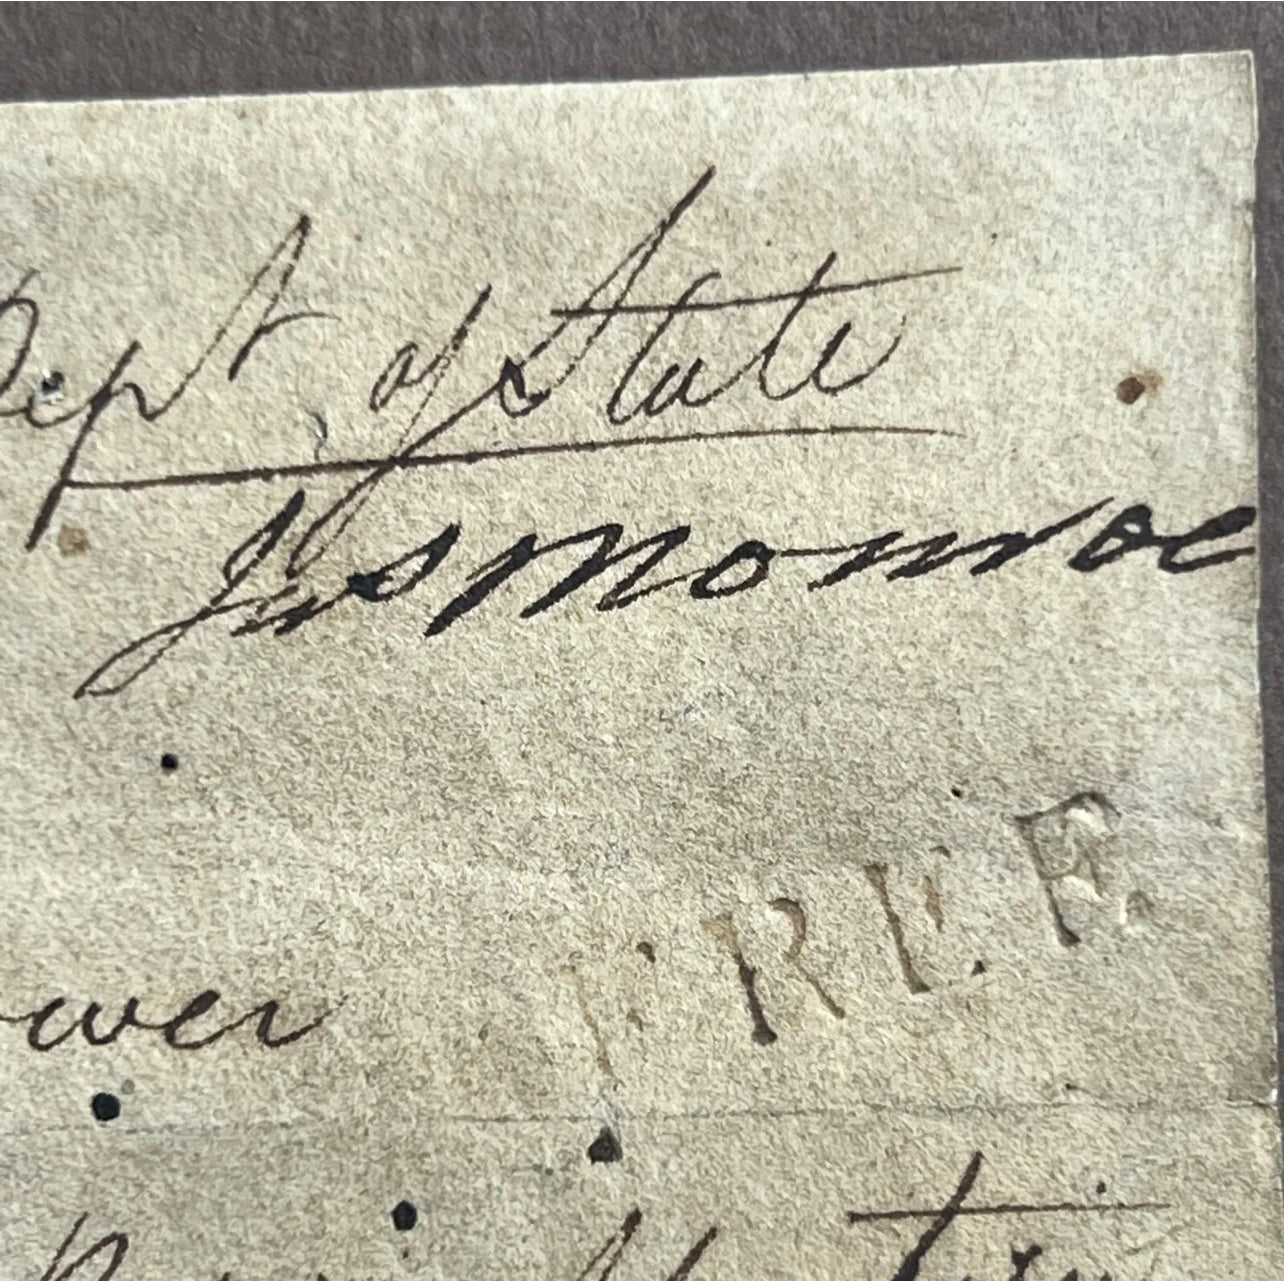 Dept of State
Jas Monroe
FREE